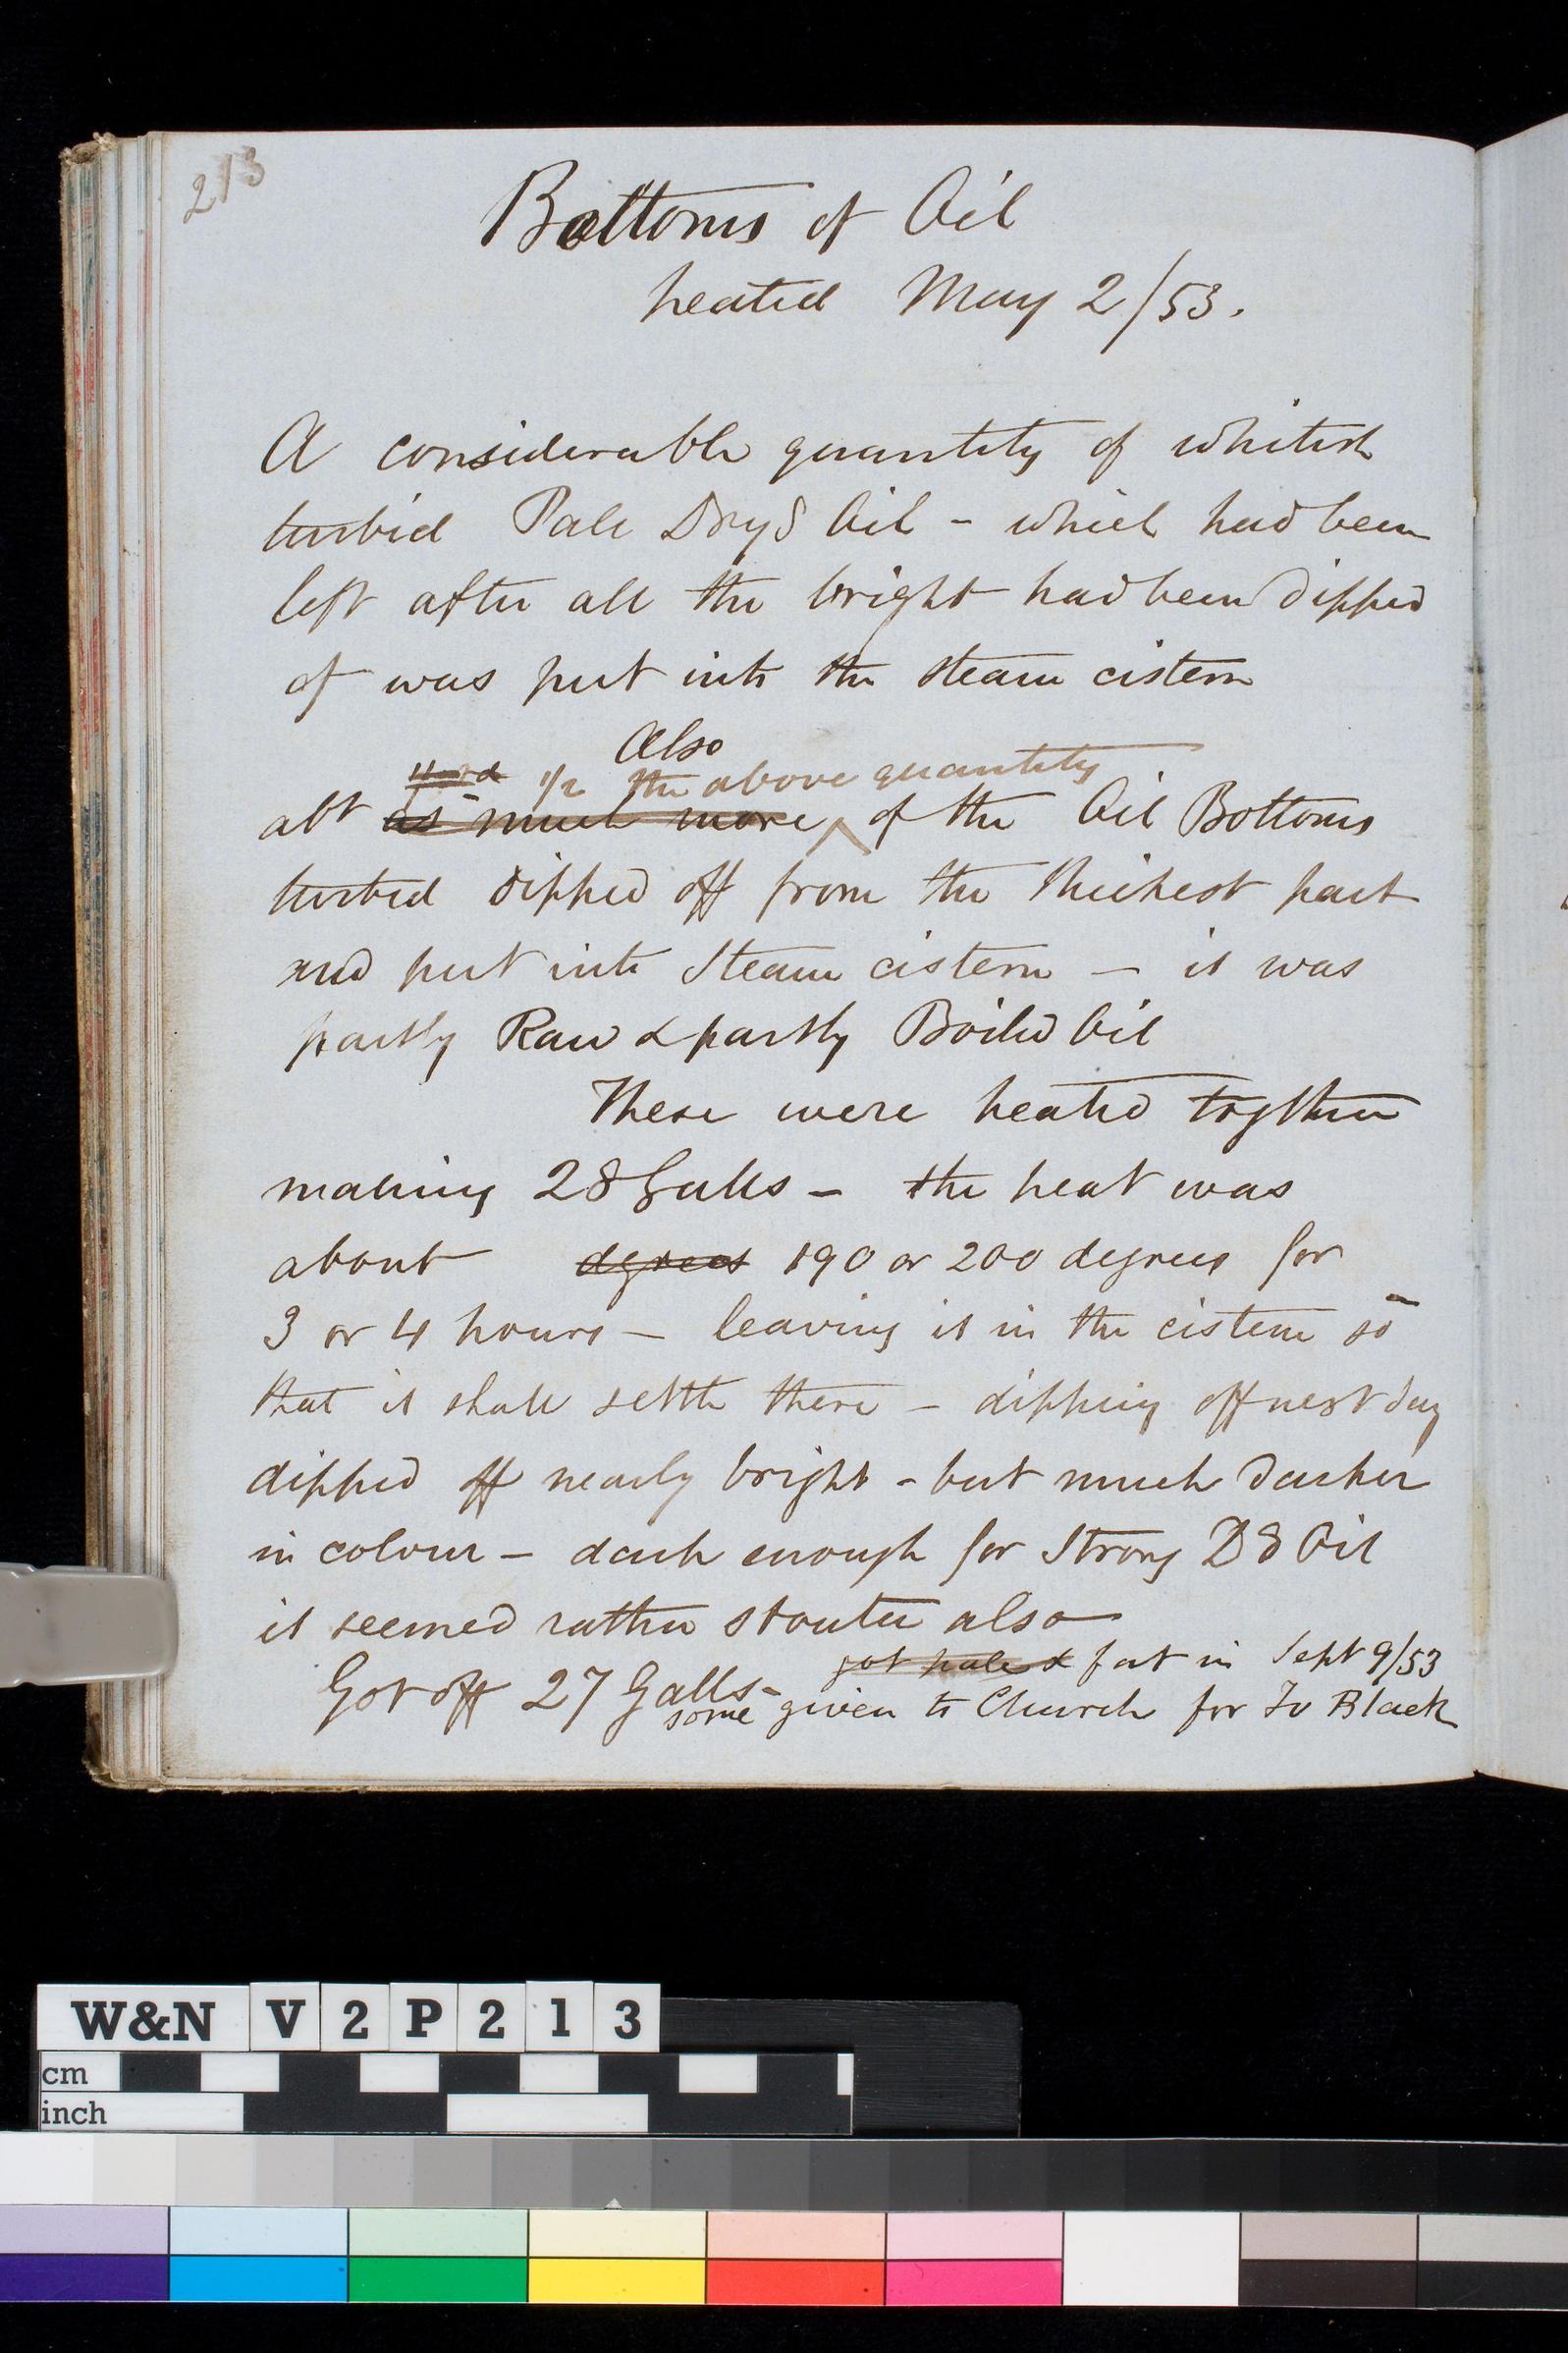 213
Bottoms of Oil
heated May 2/53.
A considerable quantity of whitish
turbid Pale Dryg Oil - which had been
left after all the bright had been dipped
of was put into the steam cistern
Also
1/2 the above quantity
abt as much more of the Oil Bottoms
turbid dipped off from the thickest part
and put into Steam cistern — it was
partly Raw & partly Boiled Oil
These were heated togther
making 28 Galls - the heat was
about degrees 190 or 200 degrees for
3 or 4 hours — leaving it in the cistern so
that it shall settle there - dipping off next day
dipped off nearly bright - but much darker
in colour - dark enough for Strong D8 Oil
it seemed rather stouter also
got pale & fat in Sept 9/53
Got off 27 Galls - some given to Church for Iv Black
W&N V 2 P 2 1 3
cm
inch